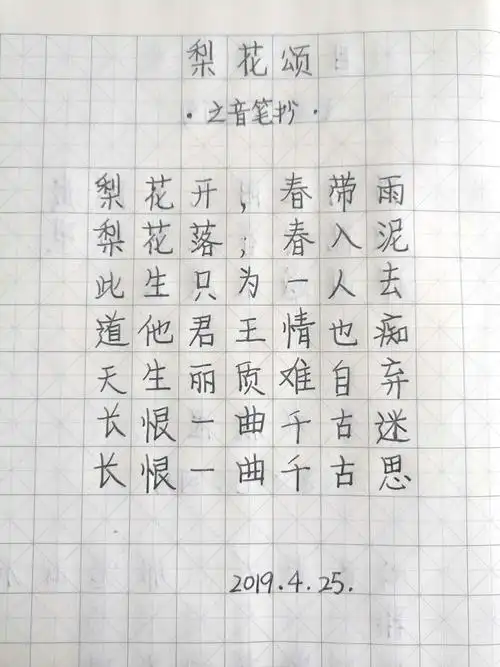 梨花颂
·之音笔抄·
梨花开，春带雨
梨花落；春入泥
此生只为一人去
道他君王情也痴
天生丽质难自弃
长恨一曲千古迷
长恨一曲千古思
2019.4.25.